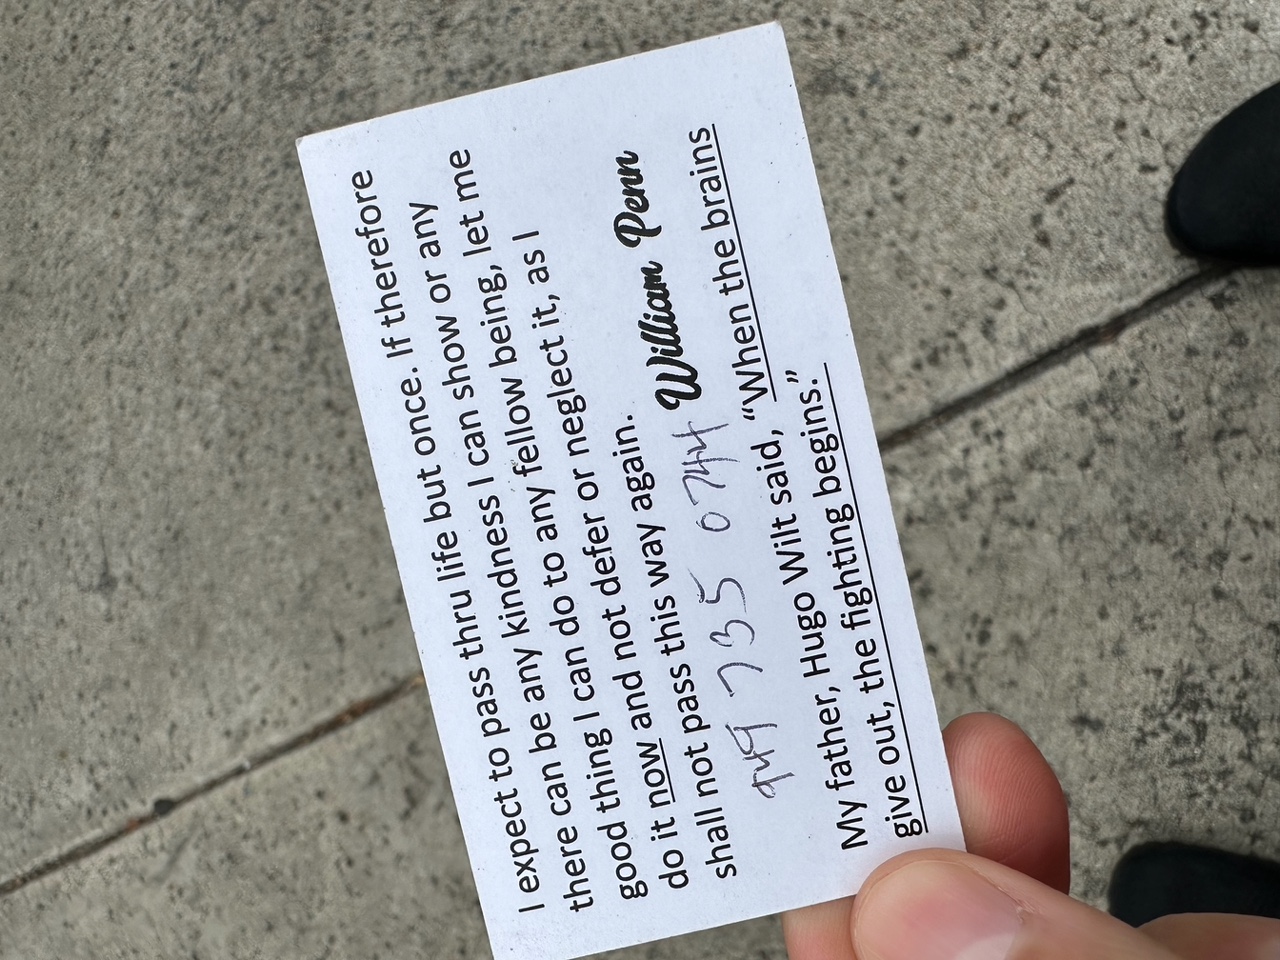 I expect to pass thru life but once. If therefore
there can be any kindness I can show or any
good thing I can do to any fellow being, let me
do it now and not defer or neglect it, as I
shall not pass this way again.
William Penn
949 735 0744
My father, Hugo Wilt said, “When the brains
give out, the fighting begins.”